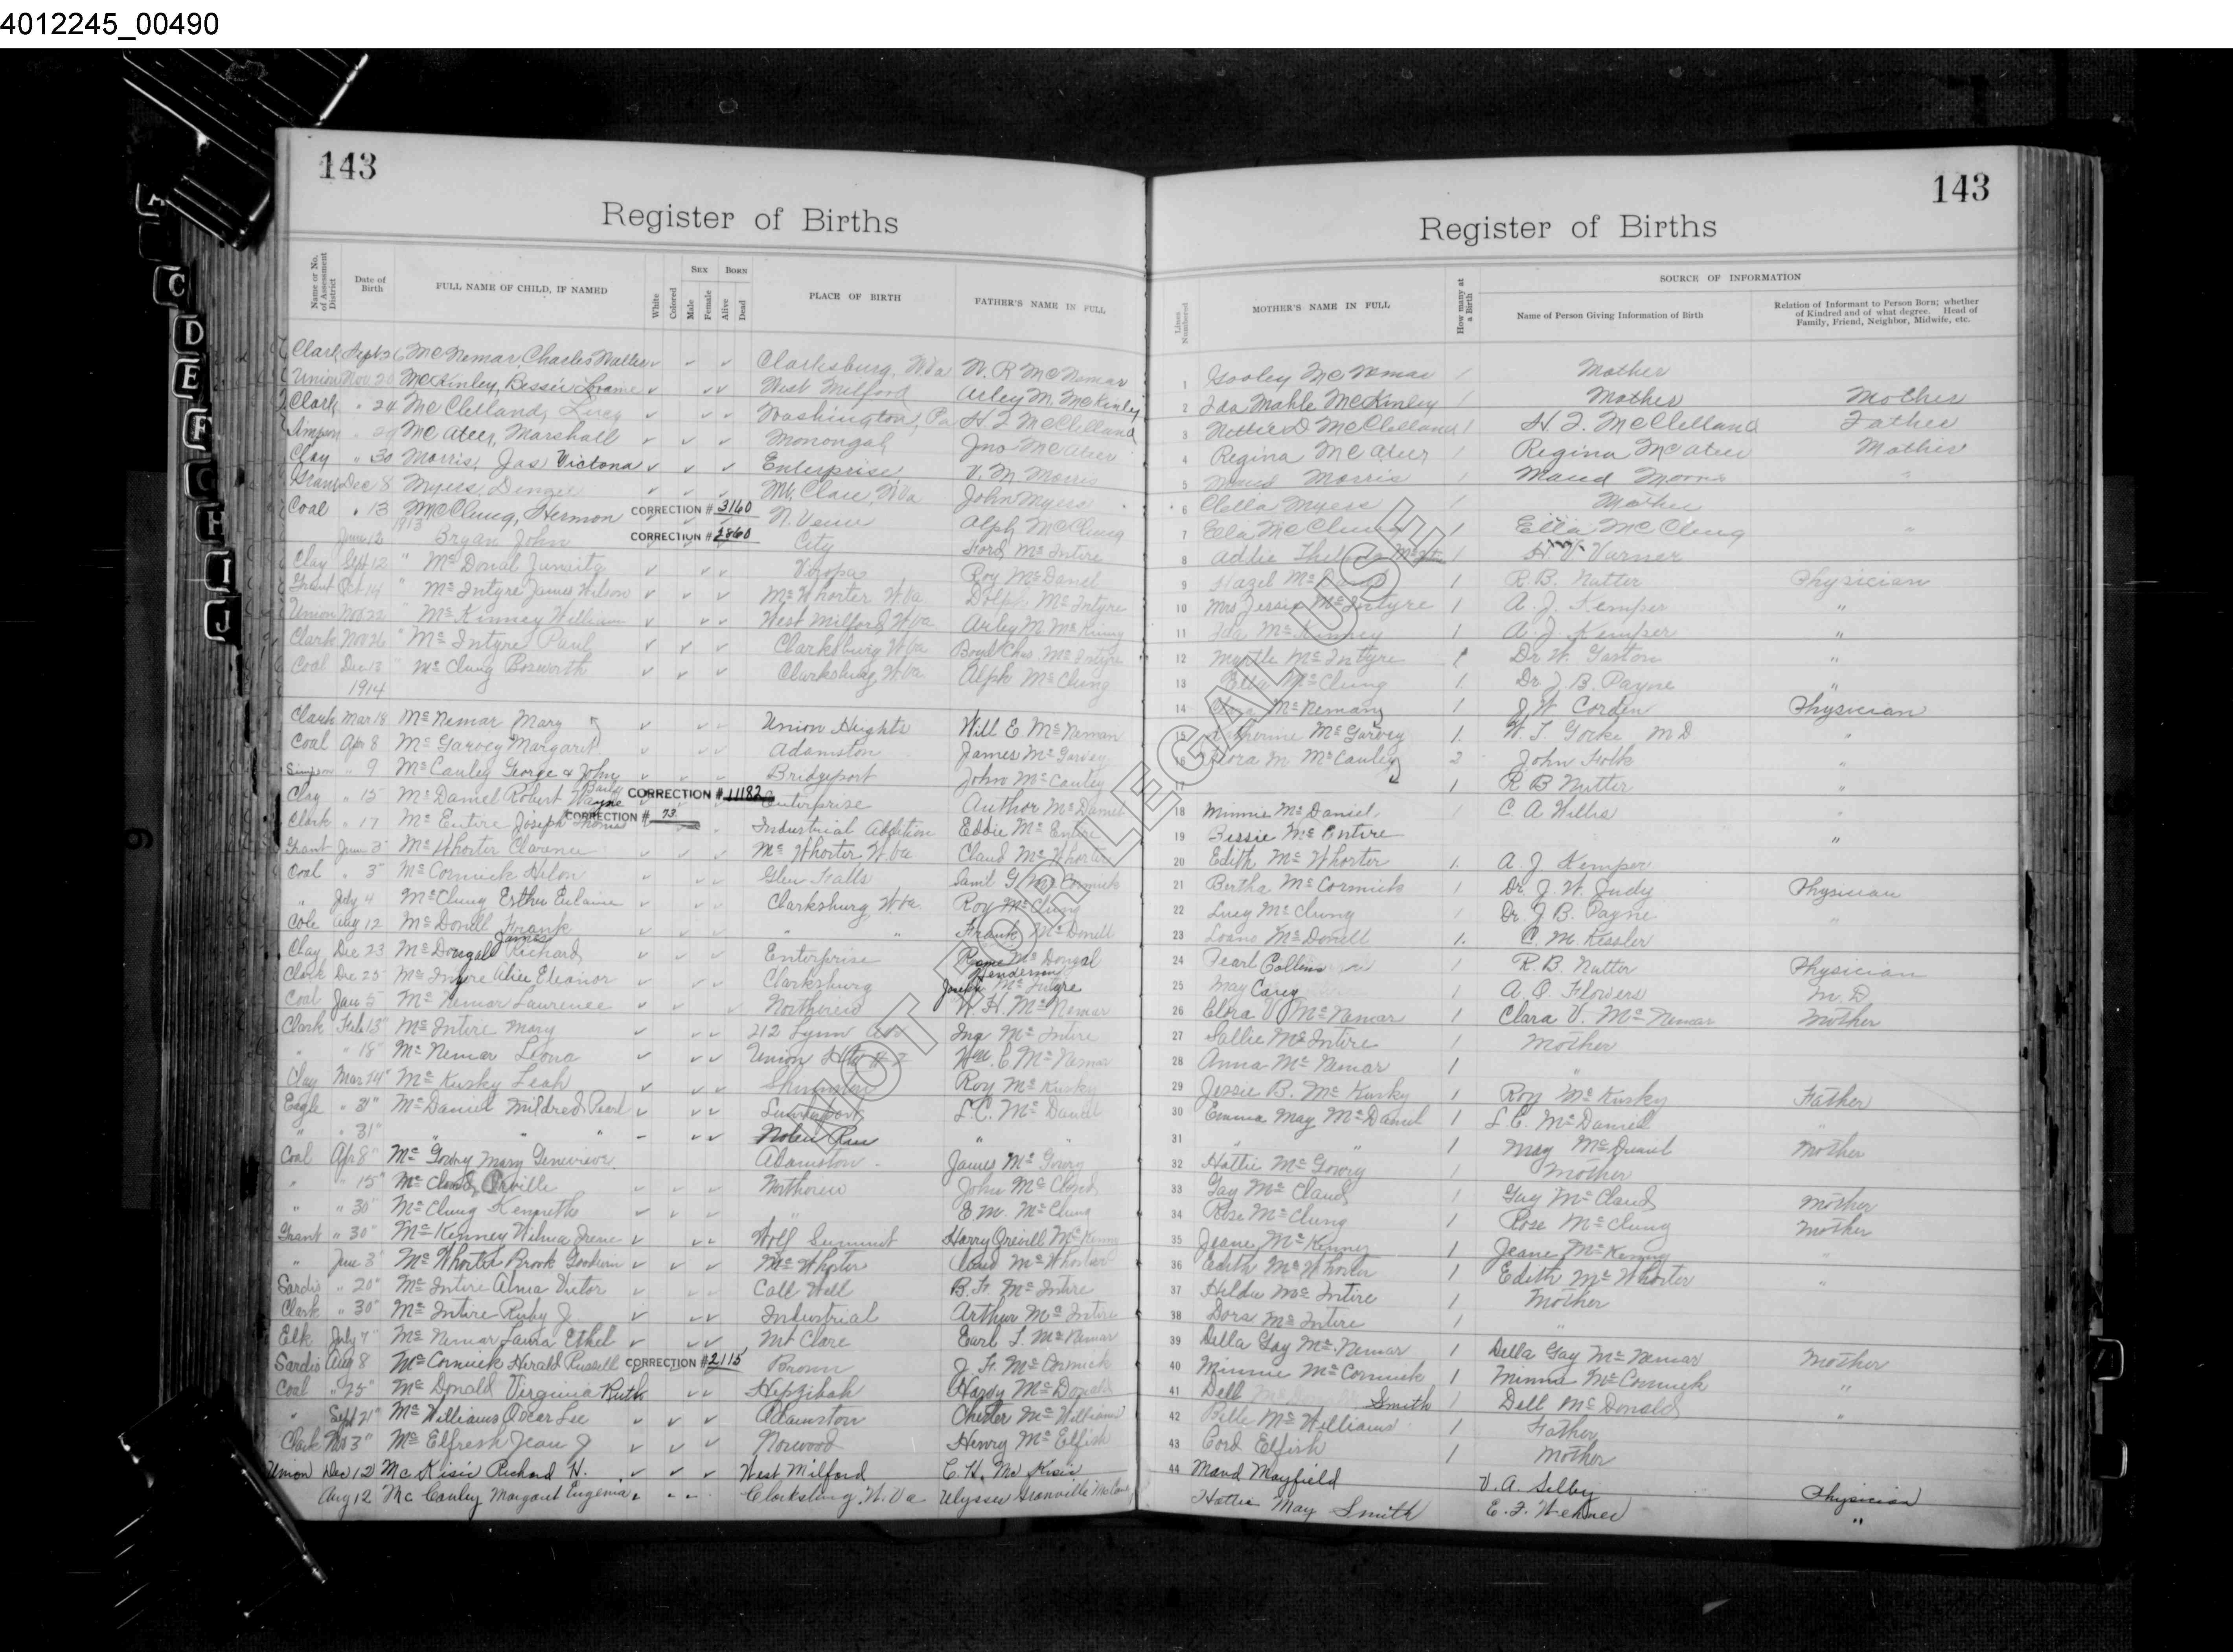 4012245_00490
143
Register of Births
Name or No. of Assessment District
Date of Birth
FULL NAME OF CHILD, IF NAMED
White
Colored
SEX
Male
Female
BORN
Alive
Dead
PLACE OF BIRTH
FATHER'S NAME IN FULL
Clark Sept 26 McNemar, Charles Clarksburg, WVa
Union Nov 20 McKinley, Bessie West Milford Arley M. McKinley
Clark " 24 McClelland, Lucy Washington, Pa H. F. McClelland
McAteer, Marshall Monongah Jno McAteer
Clay " 30 Morris, Jas Victona Enterprise V. M. Morris
Dec 8 Myers, Mt. Clare, WVa John Myers
Coal " 13 McClung, Hermon CORRECTION # 3160 Alph McClung
1913
June 12 Bryan John CORRECTION # 2860 City Ford McIntire
Clay Sept 12 " McDonal Juniata Roy McDaniel
Grant Oct 14 " McIntyre James Wilson McWhorter W.Va. Dolph McIntyre
Union Nov 22 " McKinney William West Milford W.Va
Clark Nov 26 " McIntyre Paul Clarksburg W.Va Boyd Chas McIntyre
Coal Dec 13 " McClung Bosworth Clarksburg W.Va. Alph McClung
1914
Clark Mar 18 McNemar Mary Union Heights Will E McNemar
Coal Apr 8 McGarvey Margaret Adamston James McGarvey
Simpson " 9 McCauley George & John Bridgeport John McCauley
Clay " 15 McDaniel Robert Wayne CORRECTION # 11182 Enterprise Author McDaniel
Clark " 17 McEntire Joseph Thomas CORRECTION # 73 Industrial Addition Eddie McEntire
Grant June 3 McWhorter Clarence McWhorter W.Va Claud McWhorter
Coal " 3" McCormick Helon Glen Falls Saml G McCormick
" July 4 McClung Esther Eulaine Clarksburg W.Va. Roy McClung
Cole Aug 12 McDonell Frank " " Frank McDonell
Clay Dec 23 McDougall James Richard Enterprise McDongal
Clark Dec 25 McIntyre Alice Eleanor Clarksburg Joseph Henderson McIntyre
Coal Jan 5 McNemar Laurence Northview W. H. McNemar
Clark Feb 13" McIntire Mary 212 Lynn Ave Ira McIntire
" " 18" McNemar Leona Union Hts # 2 Wm. E. McNemar
Clay Mar 14" McKusky Leah Shinnston Roy McKusky
Eagle " 31" McDaniel Mildred Pearl Lumberport L. C. McDaniel
" " 31" " " " Nolen Run " "
Coal Apr 8" McGowry Mary Genevieve Adamston James McGowry
" " 15" McCloud Orville Northview John McCloud
" " 30" McClung Kenneth " E. M. McClung
Grant " 30" McKenney Wilma Irene Wolf Summit Harry Orevill McKenney
" June 3" McWhorter Brook Goodwin McWhorter Claud McWhorter
Sardis " 20" McIntire Alma Victor Call Well B. F. McIntire
Clark " 30" McIntire Ruby J Industrial Arthur McIntire
Elk July 7" McNemar Laura Ethel Mt Clare Earl L. McNemar
Sardis Aug 8 McCormick Herald Russell CORRECTION # 2115 Brown J. F. McCormick
Coal " 25" McDonald Virginia Ruth Hepzibah Hardy McDonald
" Sept 21" McWilliams Oscar Lee Adamston Chester McWilliams
Clark Nov 3" McElfresh Jean J Norwood Henry McElfish
Union Dec 12 McKisic Richard H. West Milford C. H. McKisic
Aug 12 McCauley Margaret Eugenia Clarksburg, W.Va Ulysses Granville McCauley
143
Register of Births
Lines Numbered
MOTHER'S NAME IN FULL
How many at a Birth
SOURCE OF INFORMATION
Name of Person Giving Information of Birth
Relation of Informant to Person Born; whether of Kindred and of what degree. Head of Family, Friend, Neighbor, Midwife, etc.
1 McNemar 1 Mother
2 Ida Mahle McKinley 1 Mother Mother
3 Nettie D McClelland 1 H. F. McClelland Father
4 Regina McAteer 1 Regina McAteer Mother
5 Maud Morris 1 Maud Morris "
6 Clella Myers 1 Mother
7 Ella McClung 1 Ella McClung "
8 Addie Thelada 1 H. V. Varner
9 Hazel 1 R. B. Nutter Physician
10 Mrs Jessie McIntyre 1 A. J. Kemper "
11 Ida McKinney 1 A. J. Kemper "
12 Myrtle McIntyre 1 Dr. W. Gaston "
13 Ella McClung 1. Dr. J. B. Payne "
14 McNemar 1 J. W. Corden Physician
15 Katherine McGarvey 1. W. T. Gocke M.D. "
16 Flora M McCauley 2 John Folk "
17 1 R B Nutter "
18 Minnie McDaniel C. A. Willis "
19 Bessie McEntire "
20 Edith McWhorter 1. A. J Kemper
21 Bertha McCormick 1 Dr. J. W. Judy Physician
22 Lucy McClung 1 Dr. J. B. Payne "
23 Loano McDonell 1. C. M. Kessler
24 Pearl Collins 1 R. B. Nutter Physician
25 May Carey A. O Flowers M. D.
26 Clora V McNemar 1 Clara V. McNemar Mother
27 Sallie McIntire 1 Mother
28 Anna McNemar 1 "
29 Jessie B. McKusky 1 Roy McKusky Father
30 Emma May McDaniel 1 L C. McDaniell "
31 " " 1 May McDaniel Mother
32 Hattie McGowry 1 Mother
33 Gay McClaud 1 Gay McClaud Mother
34 Rose McClung 1 Rose McClung Mother
35 Jeane McKenney 1 Jeane McKenney "
36 Edith McWhorter 1 Edith McWhorter "
37 Hilda McIntire 1 Mother
38 Dora McIntire 1 "
39 Della Gay McNemar 1 Della Gay McNemar Mother
40 Minnie McCormick 1 Minnie McCormick "
41 Dell Smith 1 Dell McDonald "
42 Belle McWilliams 1 Father
43 Cord Elfish 1 Mother
44 Maud Mayfield V. A. Selby Physician
Hattie May Smith E. F. Wehner "
NOT FOR LEGAL USE
C
D
E
F
G
H
I
J